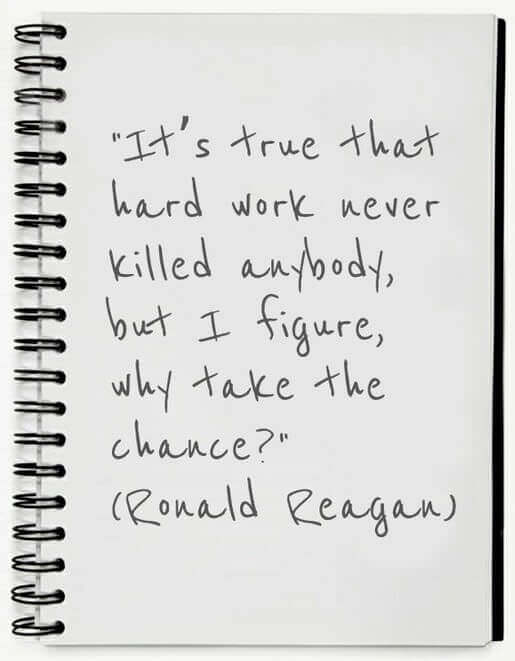 "It's true that
hard work never
killed anybody,
but I figure,
why take the
chance?"
(Ronald Reagan)